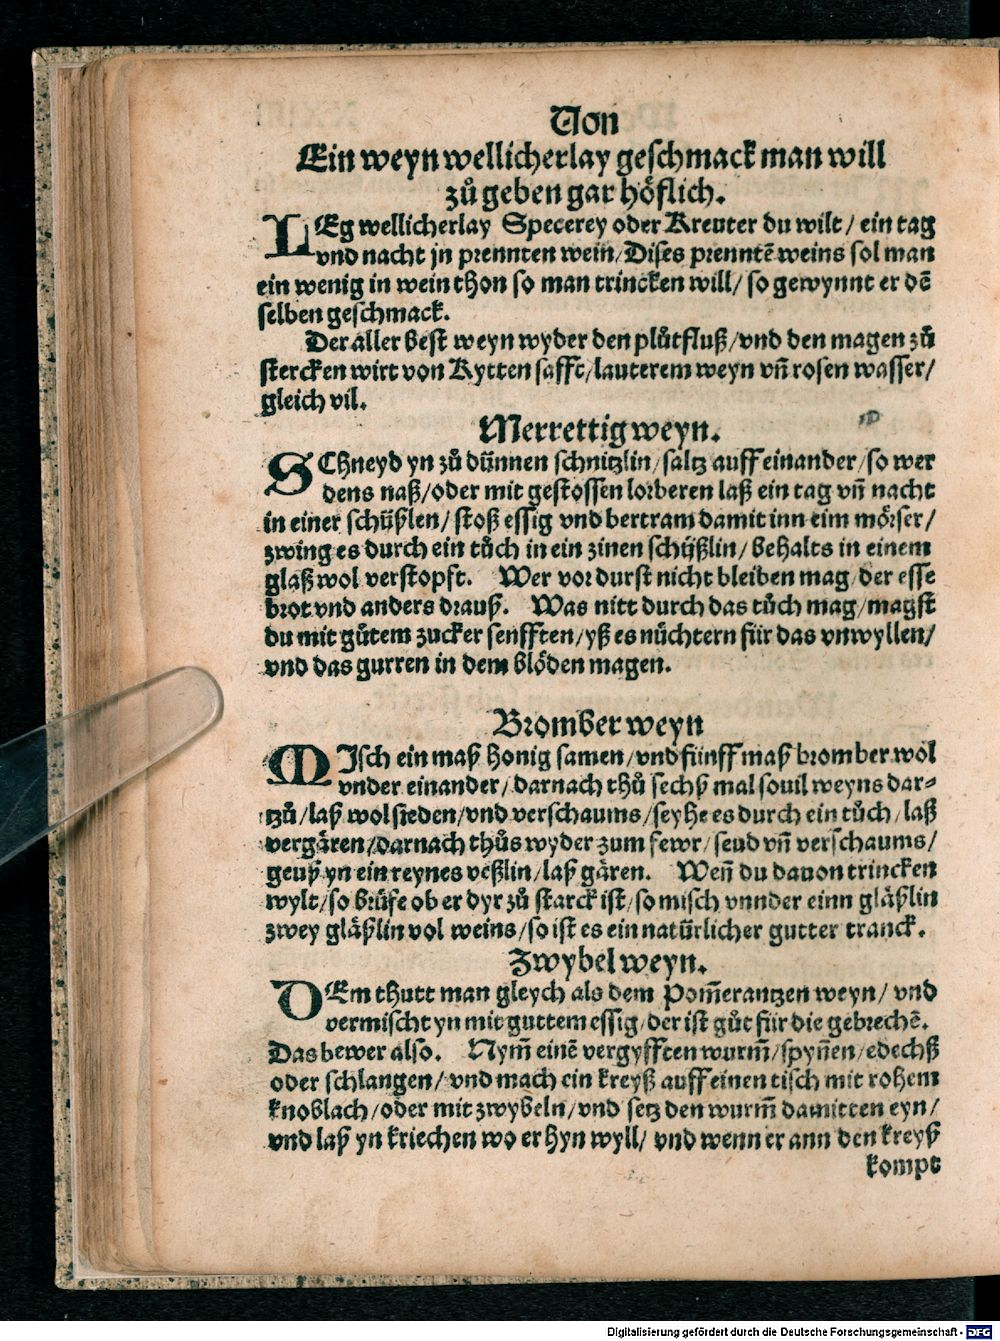 Von
Ein weyn wellicherlay geschmack man will
zů geben gar höflich.
LEg wellicherlay Specerey oder Kreuter du wilt / ein tag
vnd nacht jn prennten wein / Dises prenntē weins sol man
ein wenig in wein thon so man trincken will / so gewynnt er dē
selben geschmack.
Der aller best weyn wyder den plůtfluß / vnd den magen zů
stercken wirt von Kytten safft / lauterem weyn vñ rosen wasser /
gleich vil.
Merrettig weyn.
SChneyd yn zů dünnen schnitzlin / saltz auff einander / so wer
dens naß / oder mit gestossen lorberen laß ein tag vñ nacht
in einer schüßlen / stoß essig vnd bertram damit inn eim mörser /
zwing es durch ein tůch in ein zinen schüßlin / behalts in einem
glaß wol verstopft. Wer vor durst nicht bleiben mag der esse
brot vnd anders drauß. Was nitt durch das tůch mag / magst
du mit gůtem zucker senfften / yß es nüchtern für das vnwyllen /
vnd das gurren in dem blöden magen.
Bromber weyn
MIsch ein maß honig samen / vnd fünff maß bromber wol
vnder einander / darnach thů sechß mal souil weyns dar-
zů / laß wol sieden / vnd verschaums / seyhe es durch ein tůch / laß
vergären / darnach thůs wyder zum fewr / seud vñ verschaums /
geuß yn ein reynes veßlin / laß gären. Weñ du dauon trincken
wylt / so brüfe ob er dyr zů starck ist / so misch vnnder einn gläßlin
zwey gläßlin vol weins / so ist es ein natürlicher gutter tranck.
Zwybel weyn.
DEm thutt man gleych als dem Pom̄erantzen weyn / vnd
vermischt yn mit guttem essig / der ist gůt für die gebrechē.
Das bewer also. Nym̄ einē vergyfften wurm̄ / spyñen / edechß
oder schlangen / vnd mach ein kreyß auff einen tisch mit rohem
knoblach / oder mit zwybeln / vnd setz den wurm̄ damitten eyn /
vnd laß yn kriechen wo er hyn wyll / vnd wenn er ann den kreyß
kompt
Digitalisierung gefördert durch die Deutsche Forschungsgemeinschaft - DFG